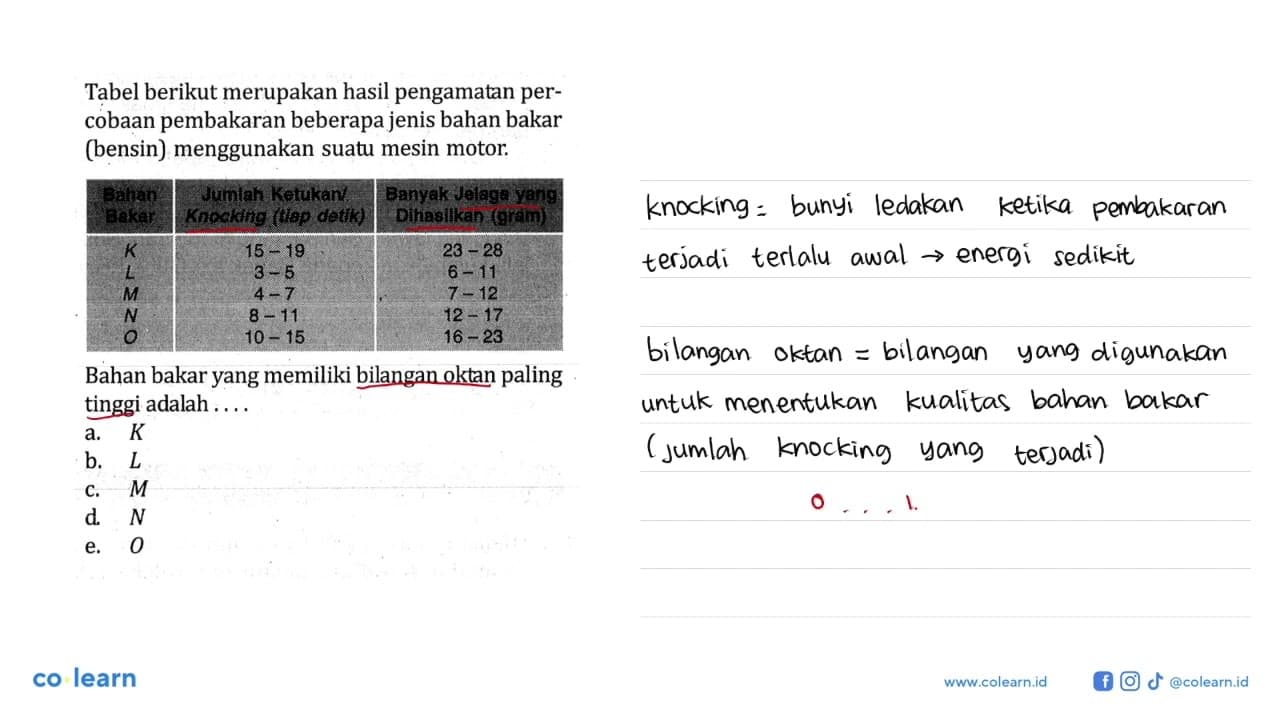 Tabel berikut merupakan hasil pengamatan per-
cobaan pembakaran beberapa jenis bahan bakar
(bensin) menggunakan suatu mesin motor.
Bahan Bakar | Jumlah Ketukan/ Knocking (tiap detik) | Banyak Jelaga yang Dihasilkan (gram)
K 15 – 19 23 – 28
L 3 – 5 6 – 11
M 4 – 7 7 – 12
N 8 – 11 12 – 17
O 10 – 15 16 – 23
Bahan bakar yang memiliki bilangan oktan paling
tinggi adalah . . . .
a. K
b. L
c. M
d. N
e. O
knocking = bunyi ledakan ketika pembakaran
terjadi terlalu awal → energi sedikit
bilangan oktan = bilangan yang digunakan
untuk menentukan kualitas bahan bakar
(jumlah knocking yang terjadi)
0 . . . 1.
co learn
www.colearn.id
@colearn.id